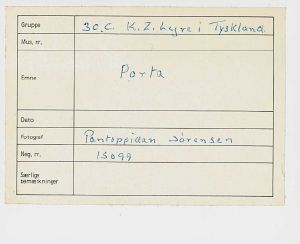 Gruppe 30.C. K.Z. Lejre i Tyskland.
Mus. nr.
Emne Porta
Dato
Fotograf Pontoppidan Sørensen
Neg. nr. 15099
Særlige bemærkninger